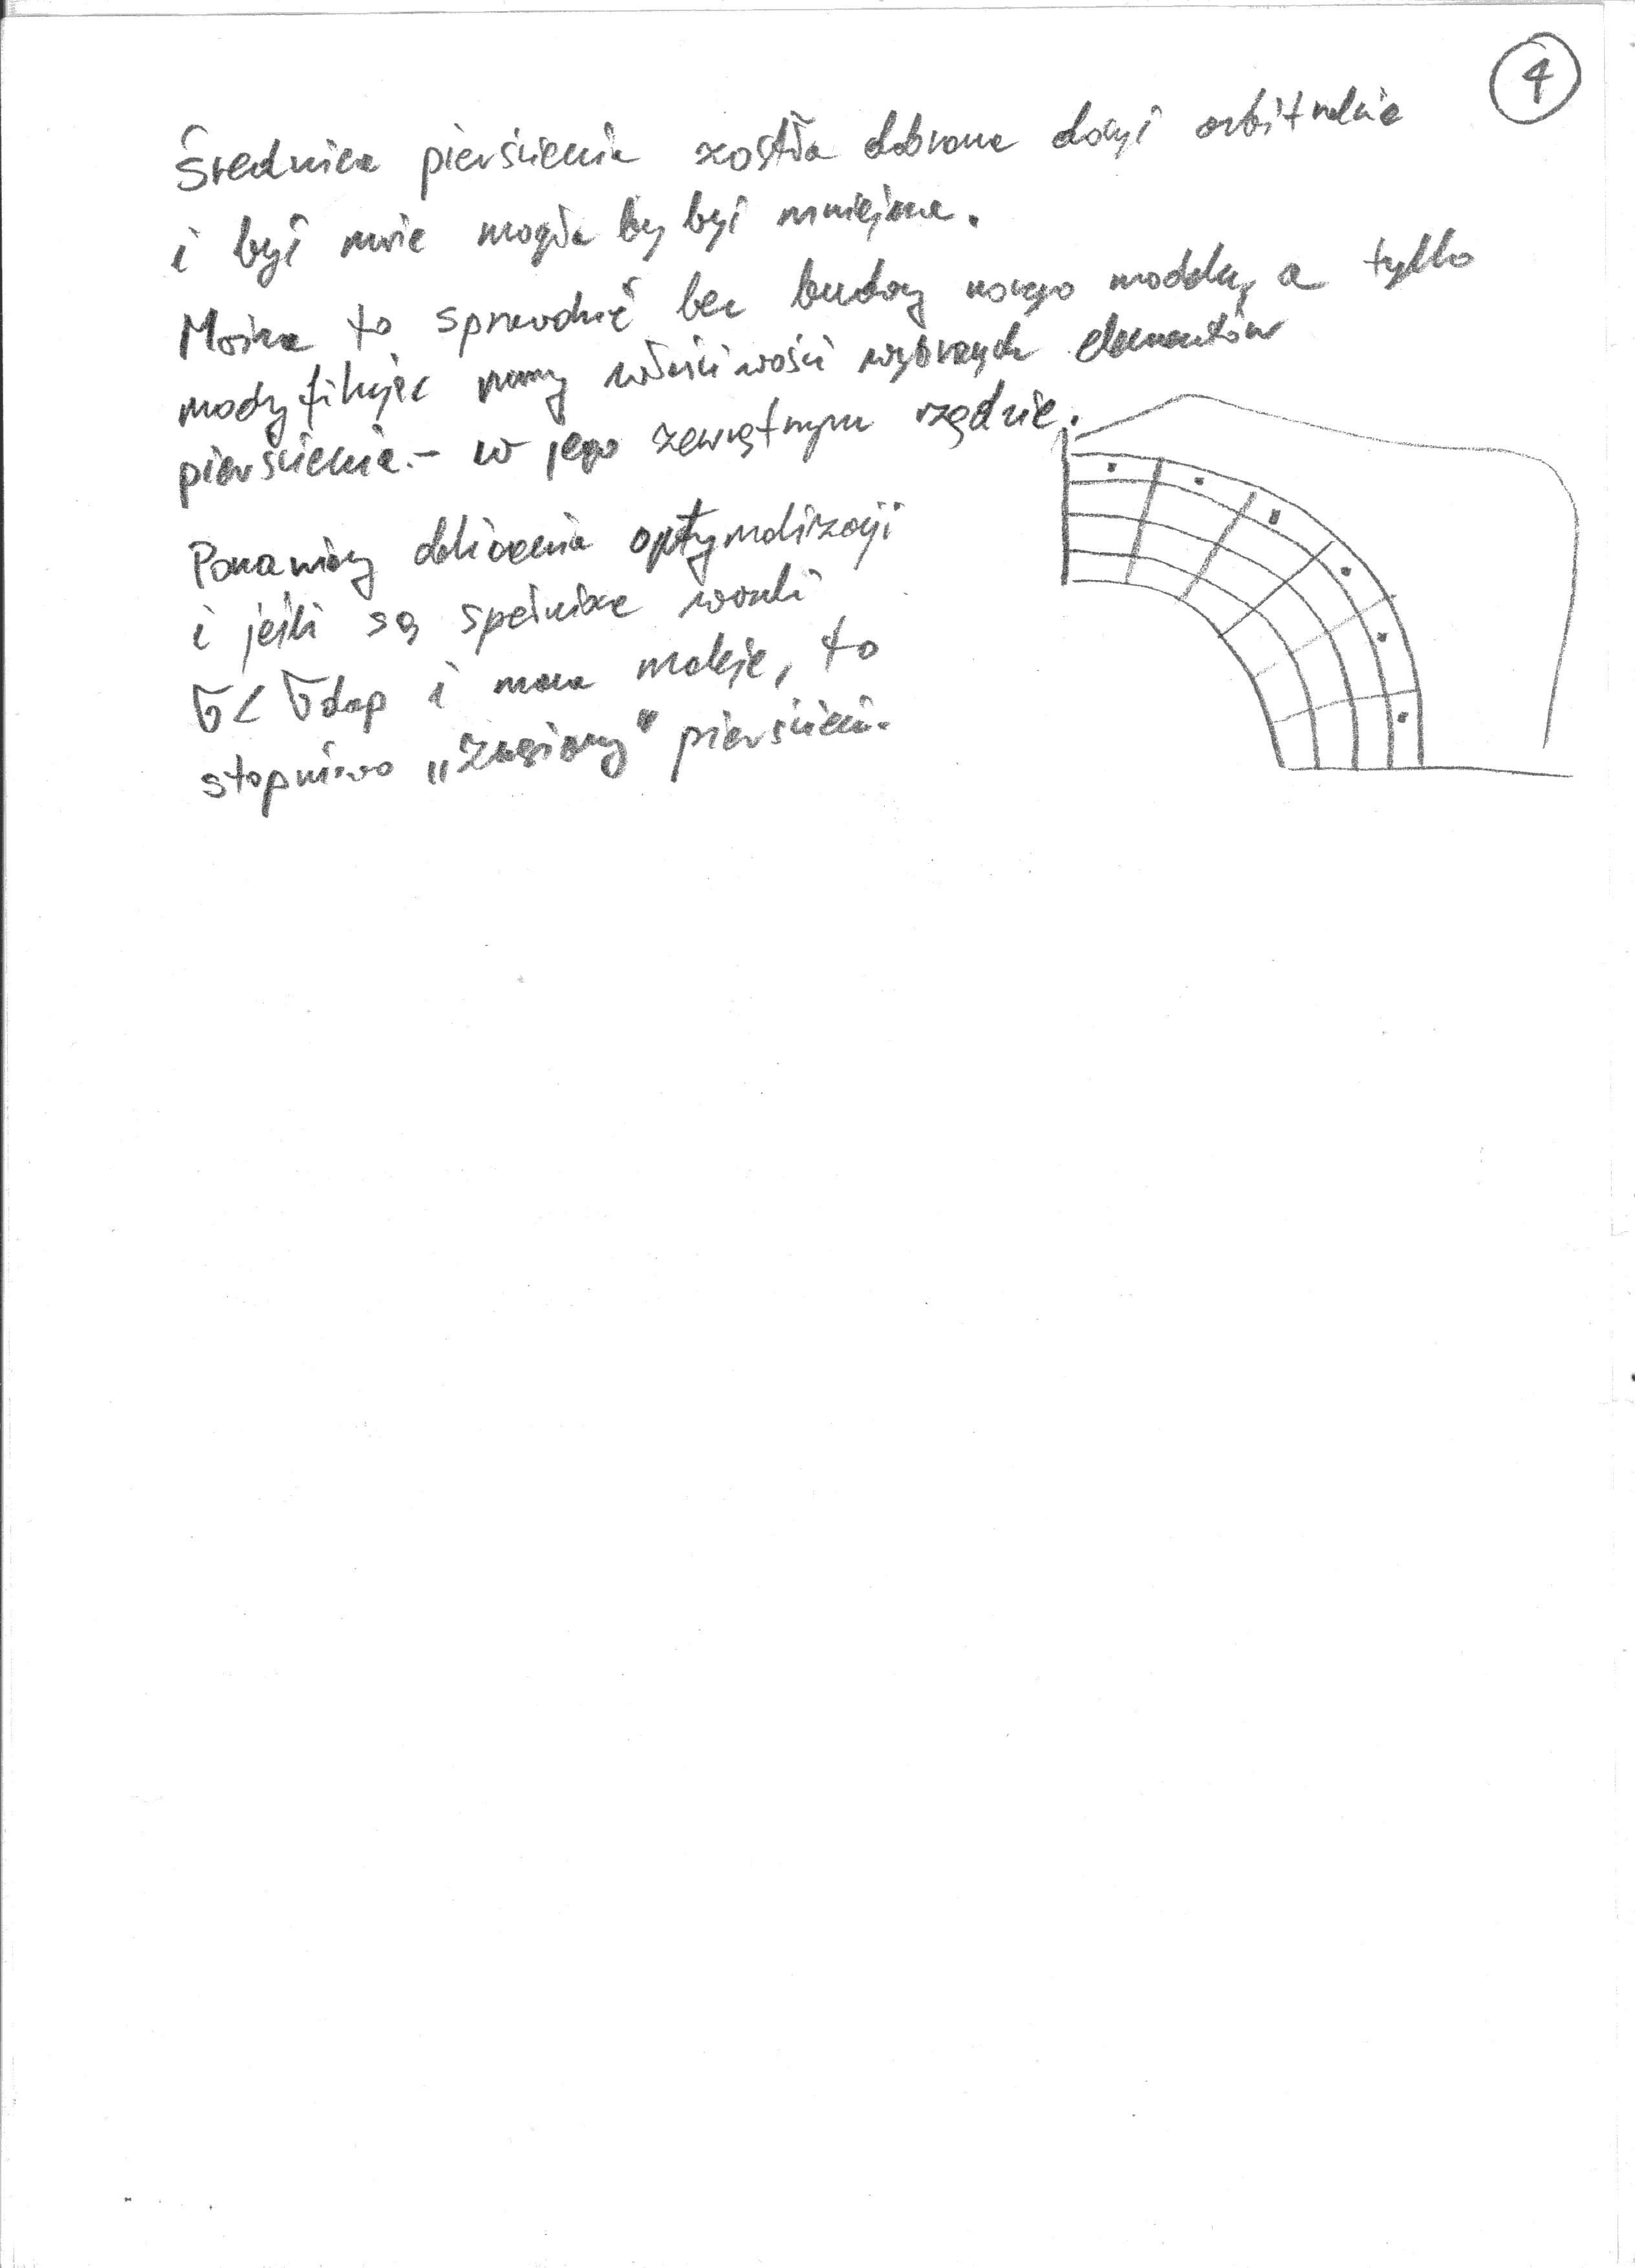 4
Średnica pierścienia została dobrana dosyć arbitralnie
i być może mogła by być mniejsza.
Można to sprawdzić bez budowy nowego modelu, a tylko
modyfikując właściwości wybranych elementów
pierścienia - w jego zewnętrznym rzędzie.
Ponawiamy obliczenia optymalizacji
i jeśli są spełnione warunki
σ < σdop i masa maleje, to
stopniowo „zwężamy" pierścień.